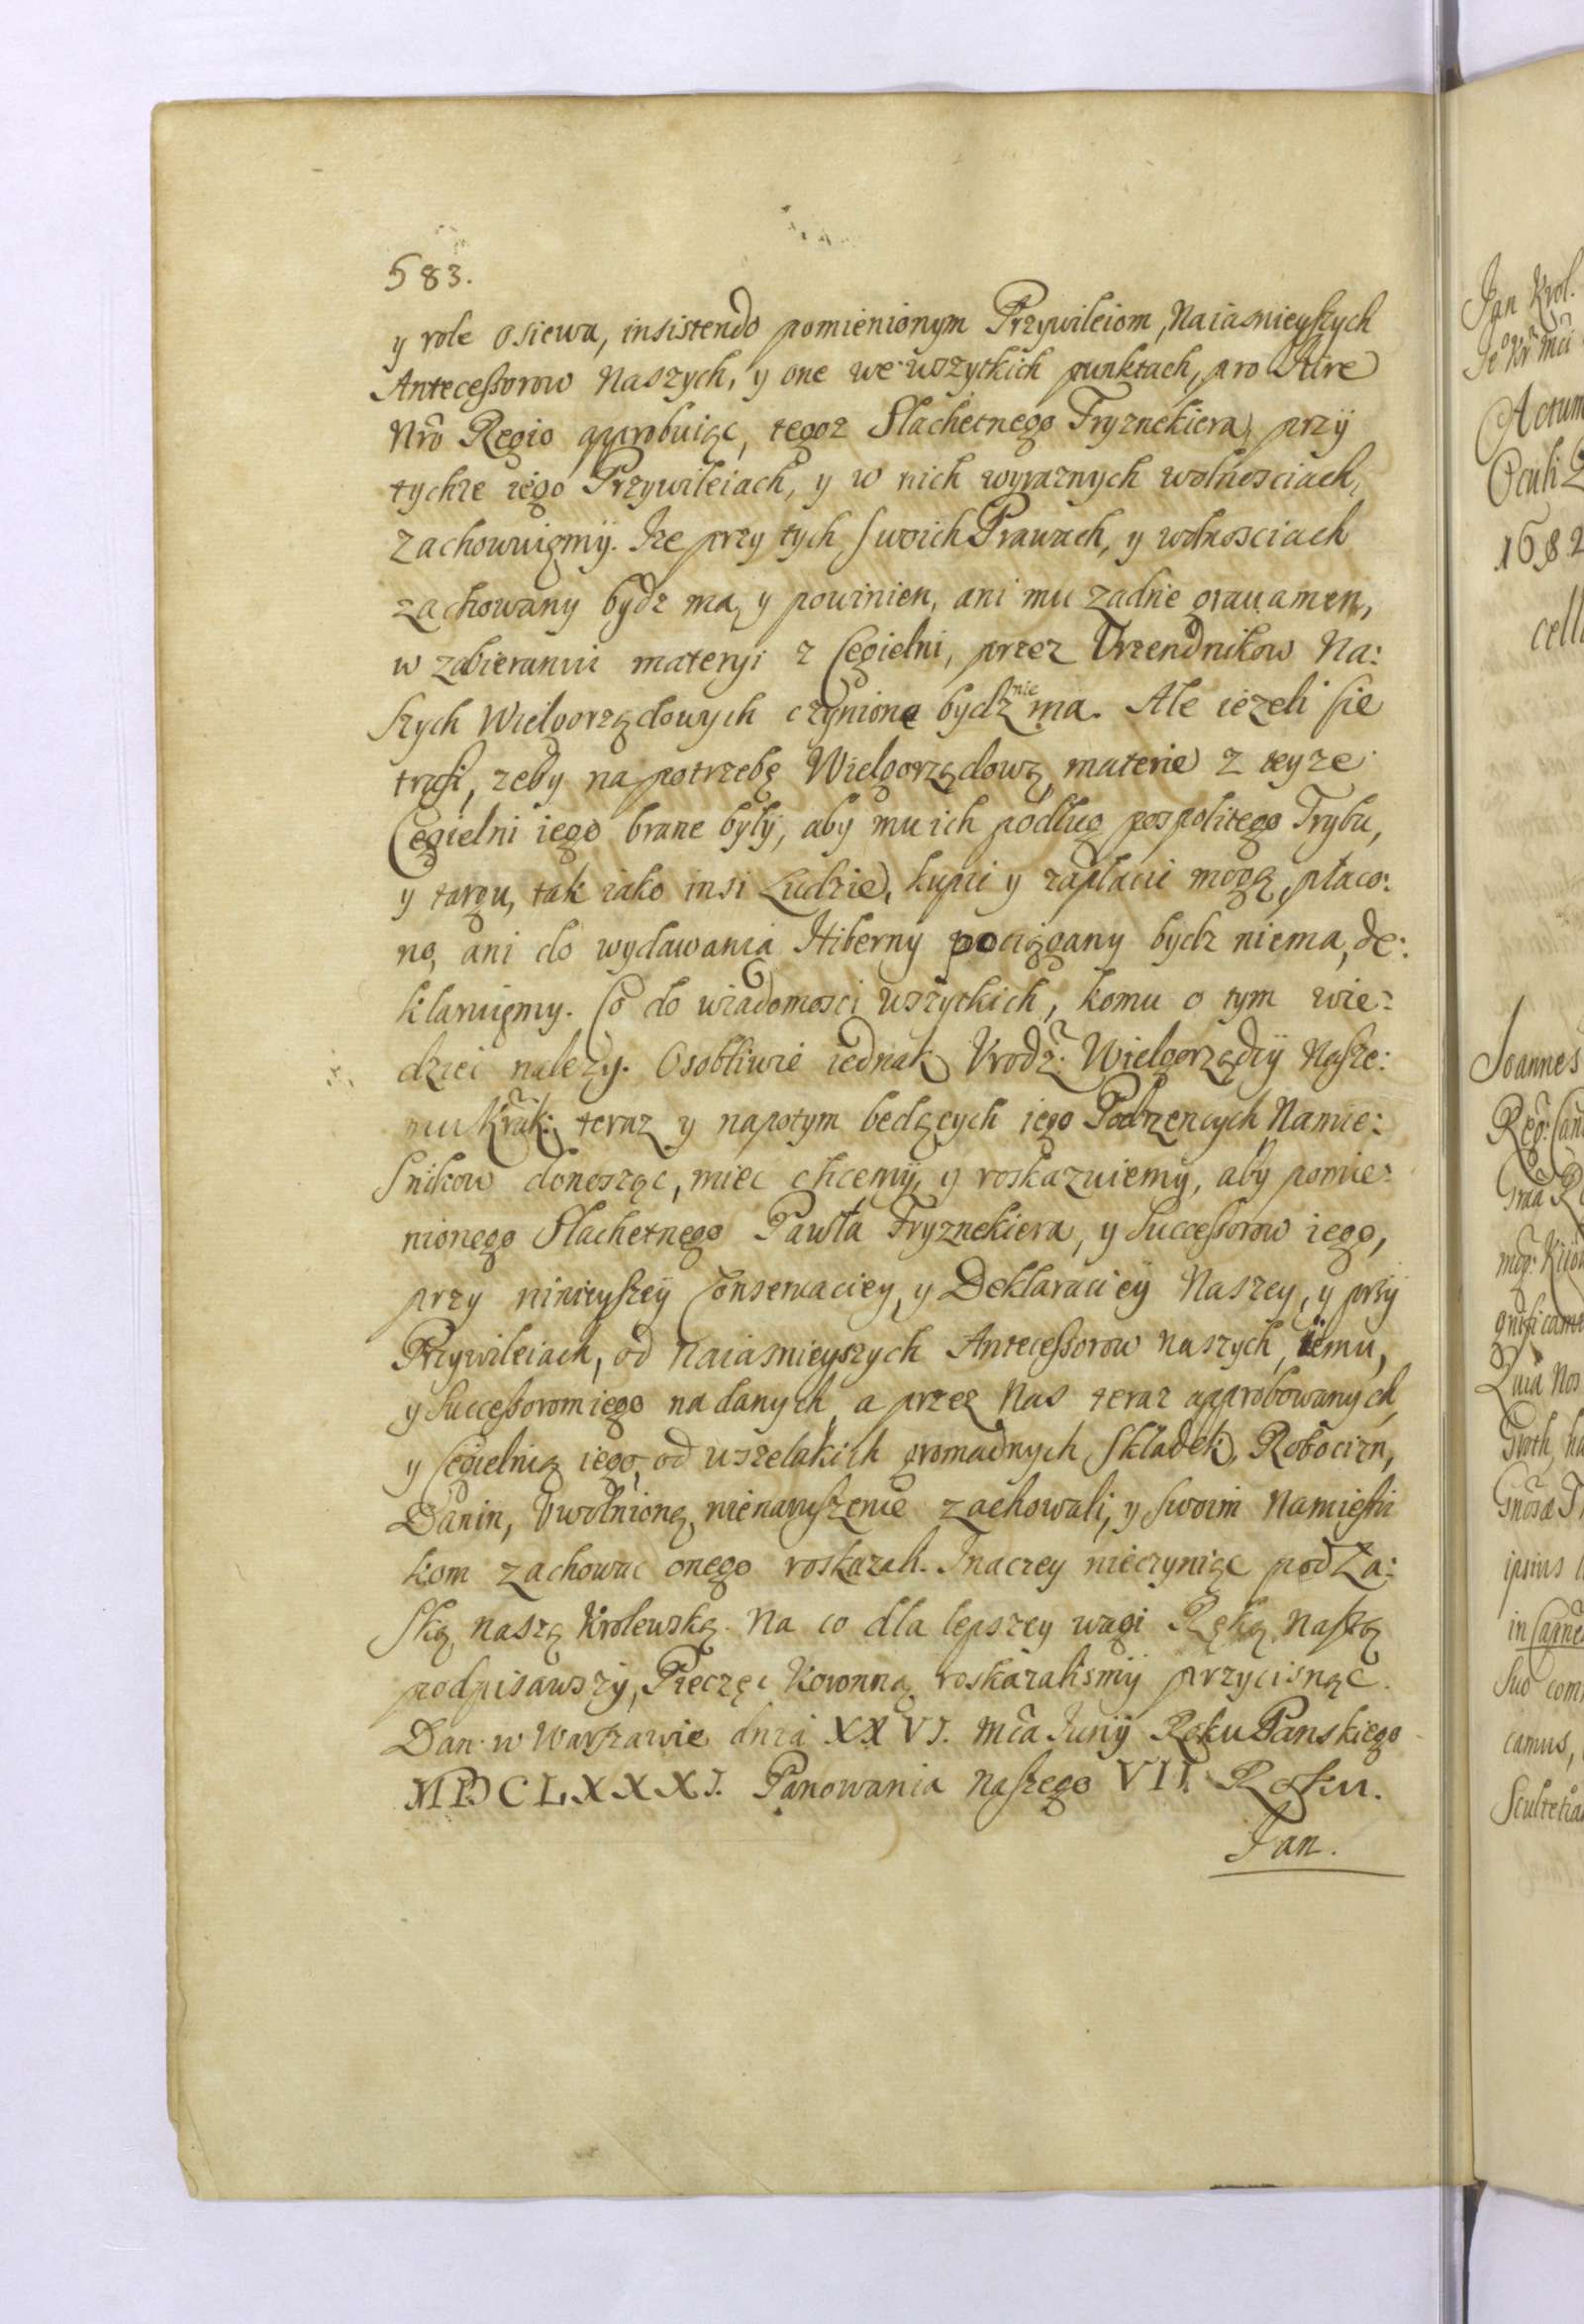 583.
y role osiewa, insistendo pomienionym Przywileiom, Naiasnieyszych
Antecessorow Naszych, y one we wszytkich punktach, pro Iure
Nrō Regio approbuiąc, tegoz Slachetnego Fryznekiera, przÿ
tychze iego Przywileiach, y w nich wyraznych wolnosciach,
zachowuięmÿ. Ize przy tych swoich Prawach, y wolnosciach
zachowany bydz ma, y powinien, ani mu zadne grauamen,
w zabieraniu materyi z Cegielni, przez Vrzendnikow Na:
szych Wielgorządowych czynione bydz nie ma. Ale iezeli sie
trafi, zeby na potrzebę Wielgorządową materie z teyze
Cegielni iego brane byłÿ, aby mu ich podług pospolitego Trybu,
y targu, tak iako insi Ludzie, kupić y zapłacić mogą, płaco:
no, ani do wydawania Hiberny pociągany bydz niema, de:
klaruięmy. Co do wiadomosci wszytkich, komu o tym wie:
dziec nalezy. Osobliwie iednak Vrodz: Wielgorządcÿ Nasze:
mu Krak: teraz y napotym bedących iego Podrzencych Namie:
snikow donosząc, miec chcemÿ, y roskazuiemÿ, aby pomie:
nionego Slachetnego Pawła Fryznekiera, y Successorow iego,
przy ninieyszeÿ Conserwaciey, y Deklaracieÿ Naszey, y przÿ
Przywileiach, od Naiasnieyszych Antecessorow naszych, iemu,
y Successorom iego nadanych, a przez Nas teraz approbowanych,
y Cegielnią iego, od wszelakich gromadnych Składek, Robocizn,
Danin, Vwolnioną, nienaruszenie zachowali, y swoim Namiesni
kom zachowac onego roskazali. Inaczey nieczyniąc pod Ła:
ską naszą Krolewską. Na co dla lepszey wagi Ręką naszą
podpisawszÿ, Pieczęc Koronną roskazalismÿ przycisnąc.
Dan w Warszawie dnia XXVI. Mca Iunÿ Roku Panskiego
MDCLXXXI. Panowania naszego VII. Roku.
Jan.
Jan Krol.
Actum
Oculi
1682
Joannes
camus,